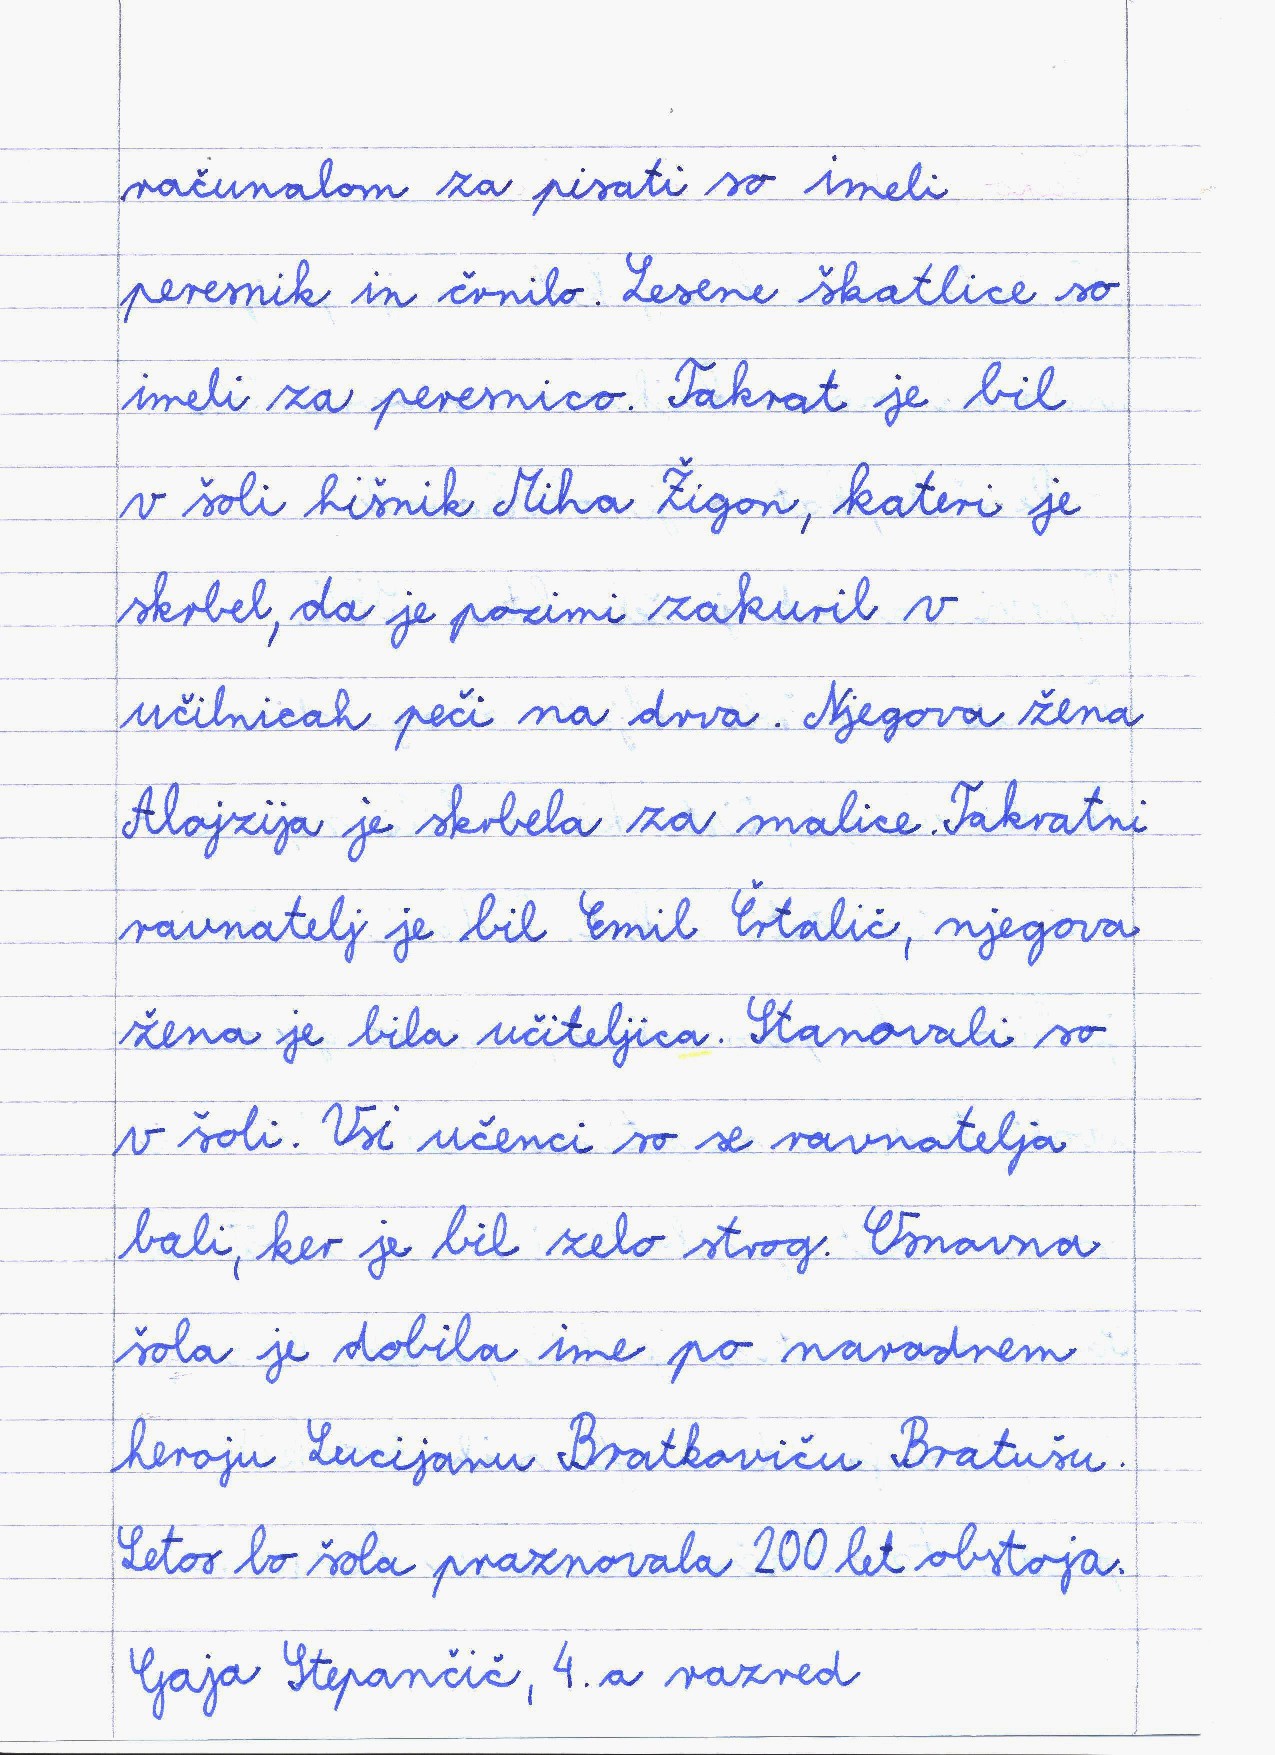 računalom za pisati so imeli
peresnik in črnilo. Lesene škatlice so
imeli za peresnico. Takrat je bil
v šoli hišnik Miha Žigon, kateri je
skrbel, da je pozimi zakuril v
učilnicah peči na drva. Njegova žena
Alojzija je skrbela za malice. Takratni
ravnatelj je bil Emil Črtalič, njegova
žena je bila učiteljica. Stanovali so
v šoli. Vsi učenci so se ravnatelja
bali, ker je bil zelo strog. Osnovna
šola je dobila ime po narodnem
heroju Lucijanu Bratkoviču Bratušu.
Letos bo šola praznovala 200 let obstoja.
Gaja Stepančič, 4. a razred